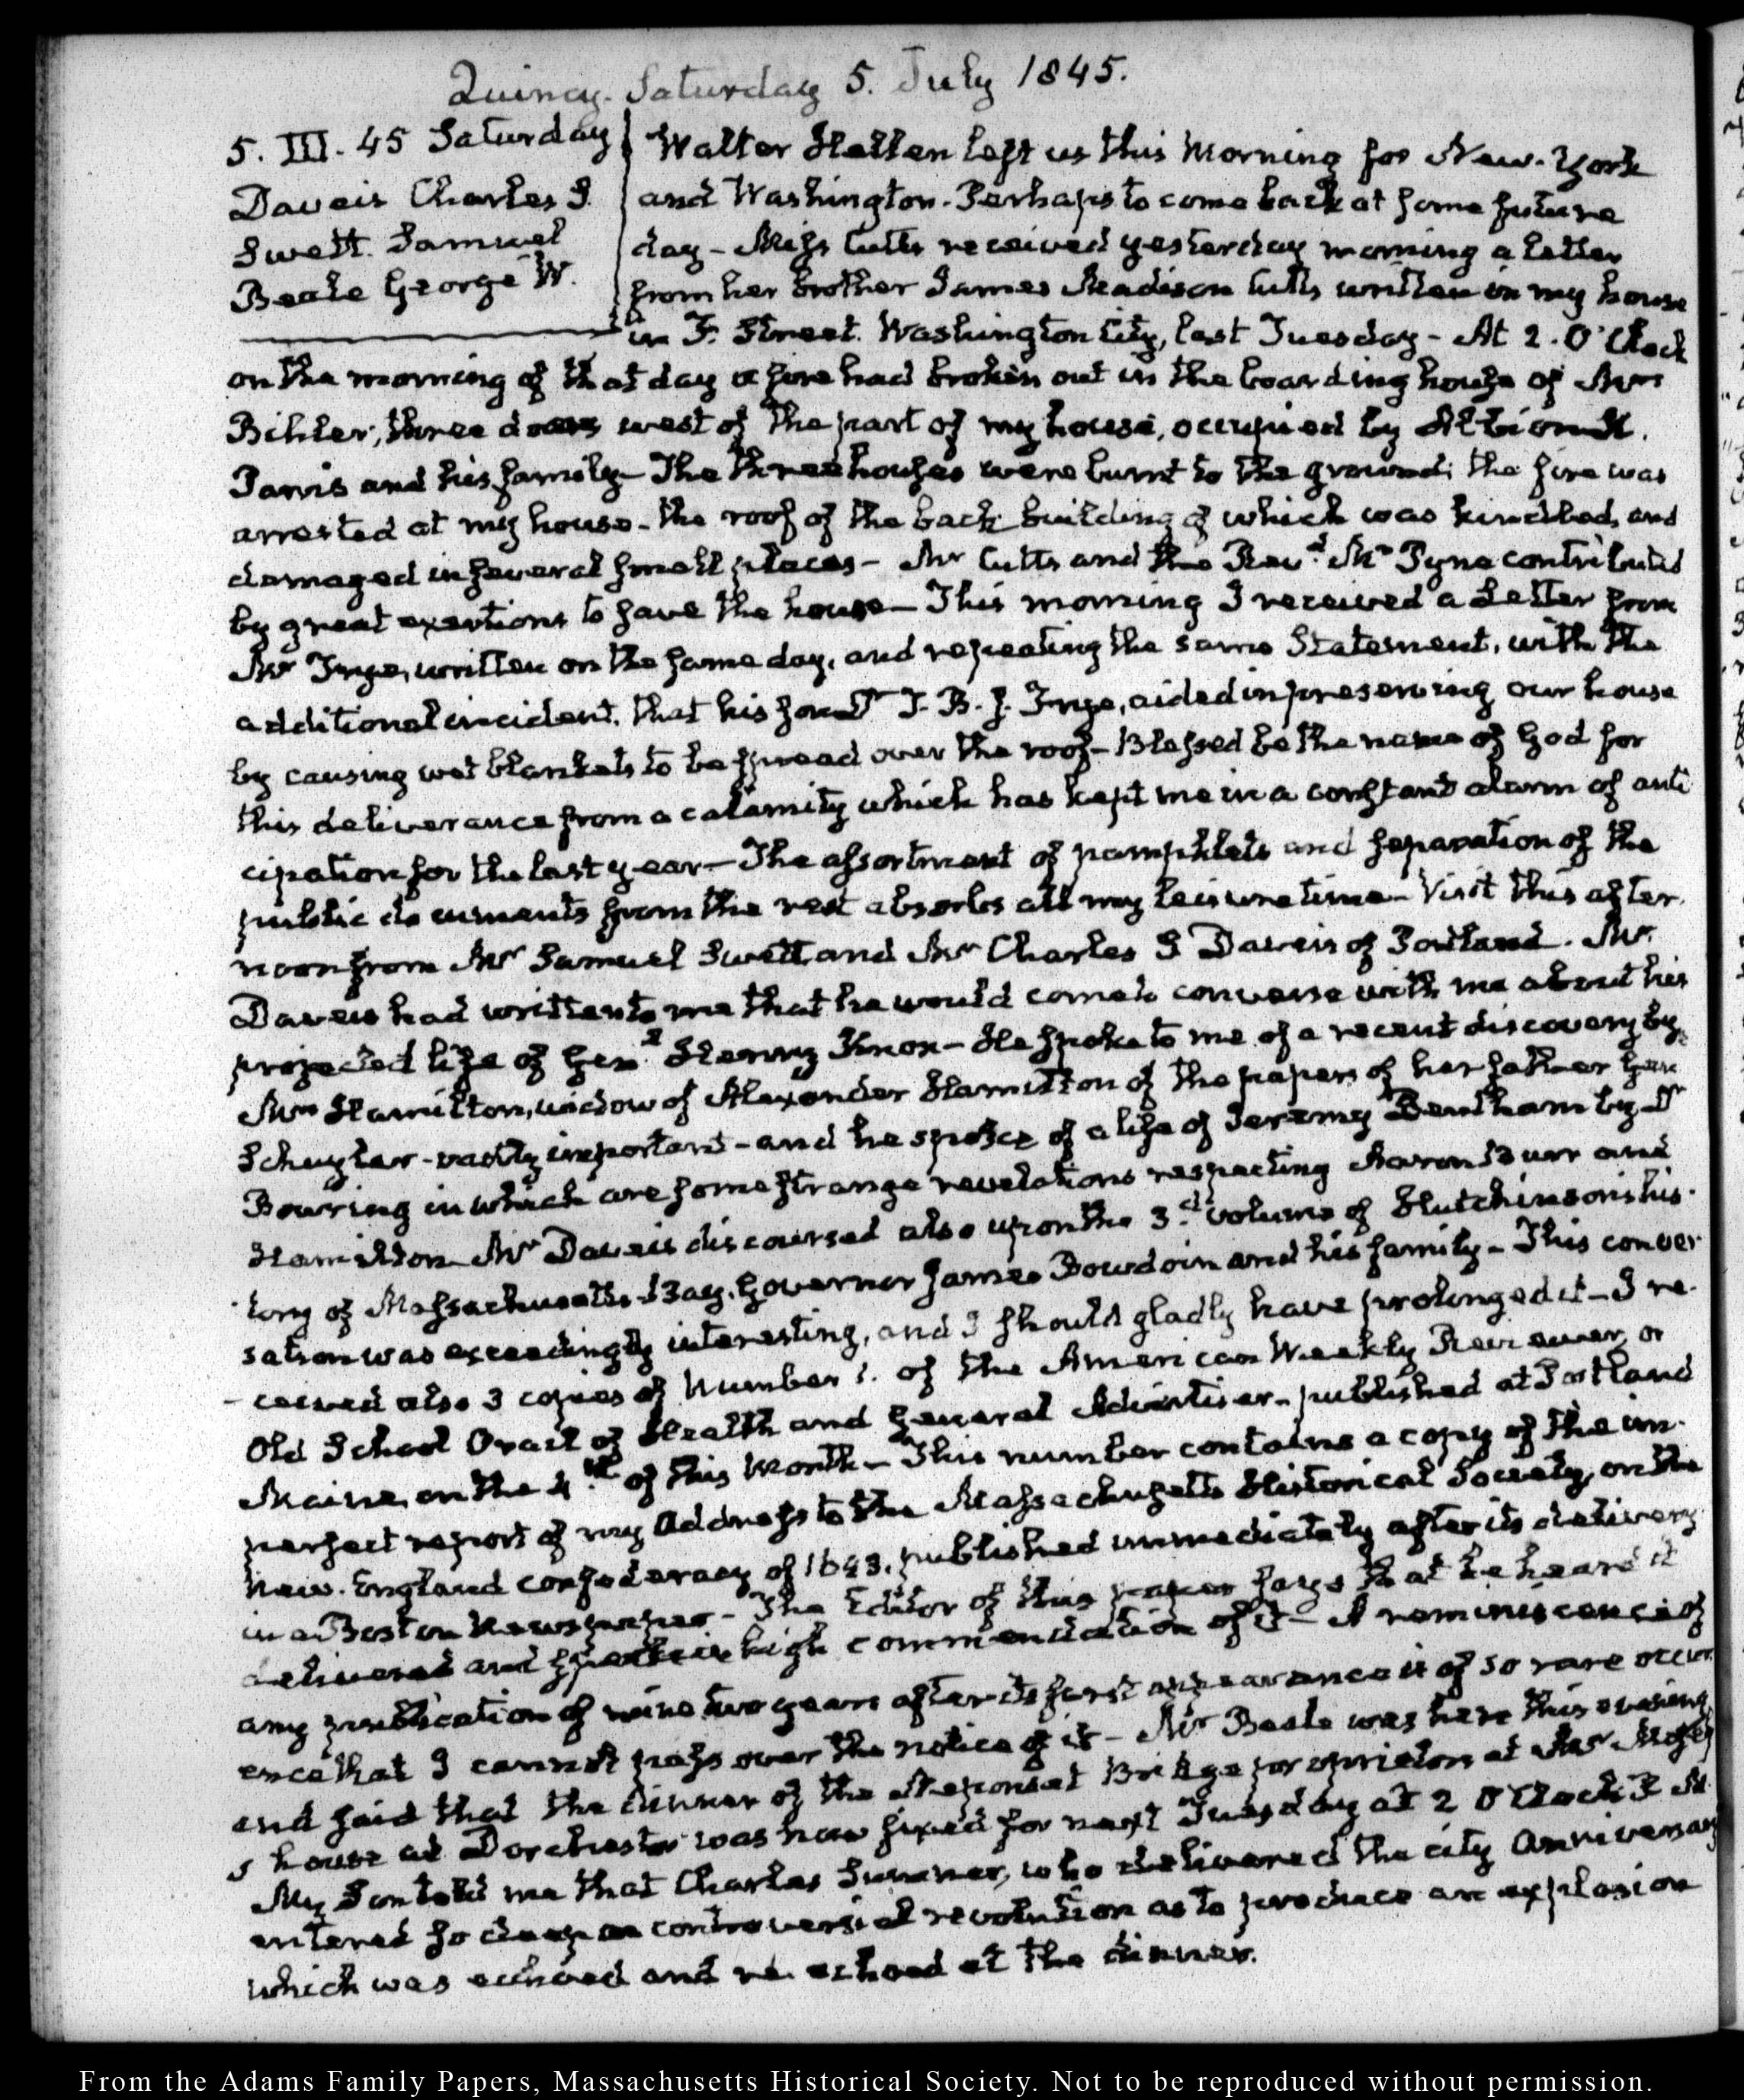 Quincy. Saturday 5. July 1845.
5. III. 45 Saturday
Daveis Charles S.
Swett. Samuel
Beale George W.
Walter Hellen left us this Morning for New-York
and Washington. Perhaps to come back at some future
day – Miss Cutts received yesterday morning a letter
from her brother James Madison Cutts written in my house
in F. Street. Washington City, last Tuesday – At 2. O'Clock
on the morning of that day a fire had broken out in the boarding house of Mrs
three doors west of the part of my house, occupied by
and his family – The three houses were burnt to the ground; the fire was
arrested at my house – the roof of the back building of which was kindled, and
damaged in several small places – Mr Cutts and the Revd. Mr contributed
by great exertions to save the house – This morning I received a Letter from
Mr written on the same day, and repeating the same Statement, with the
additional incident, that his son Dr aided in preserving our house
by causing wet blankets to be spread over the roof – Blessed be the name of God for
this deliverance from a calamity which has kept me in a constant alarm of anti
cipation for the last year – The assortment of pamphlets and separation of the
public documents from the rest absorbs all my leisure time – Visit this after
noon from Mr Samuel Swett, and Mr Charles S Daveis of Portland. Mr.
Daveis had written to me that he would come to converse with me about his
projected life of Genl. Henry Knox – He spoke to me of a recent discovery by
Mrs Hamilton, widow of Alexander Hamilton of the papers of her father Genl
Schuyler – vastly important – and he spoke of a life of Jeremy Bentham by Dr
Bowring in which are some strange revelations respecting Aaron Burr and
Hamilton – Mr Daveis discoursed also upon the 3.d volume of Hutchinson's his-
tory of Massachusetts Bay. Governor James Bowdoin and his family – This conver
sation was exceedingly interesting, and I should gladly have prolonged it – I re-
ceived also 3 copies of Number 1. of the American Weekly or
Old School Oracle of Health and General Advertiser – published at Portland
Maine, on the 4.th of this Month – This number contains a copy of the im-
perfect report of my Address to the Massachusetts Historical Society, on the
New-England confederacy of 1643. published immediately after its delivery
in a Boston Newspaper – The Editor of this paper says that he heard it
delivered and speaks in high commendation of it – A reminiscence of
any publication of mine two years after its first appearance is of so rare occur
ence that I cannot pass over the notice of it – Mr Beale was here this evening
and said that the dinner of the Neponset Bridge proprietors at Mr
s house at Dorchester was now fixed for next Tuesday at 2 O'Clock P. M.
My Son told me that Charles Sumner, who delivered the city Anniversary
entered so deep on controversial revolution as to produce an explosion
which was echoed and re-echoed at the dinner.
From the Adams Family Papers, Massachusetts Historical Society. Not to be reproduced without permission.